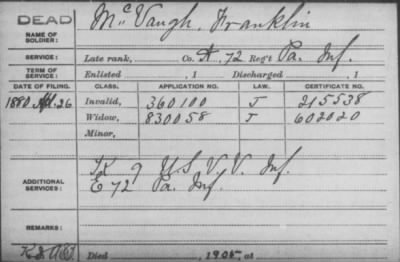 DEAD
NAME OF SOLDIER: McVaugh, Franklin
SERVICE: Late rank, Co. A, 72 Reg't Pa. Inf.
TERM OF SERVICE: Enlisted , 1 Discharged , 1
DATE OF FILING. CLASS. APPLICATION NO. LAW. CERTIFICATE NO.
1880 Apl. 26 Invalid, 360100 J 215538
Widow, 830058 J 602020
Minor,
ADDITIONAL SERVICES: K 9 U.S.V.V. Inf.
E 72 Pa. Inf.
REMARKS:
Died , 1905, at